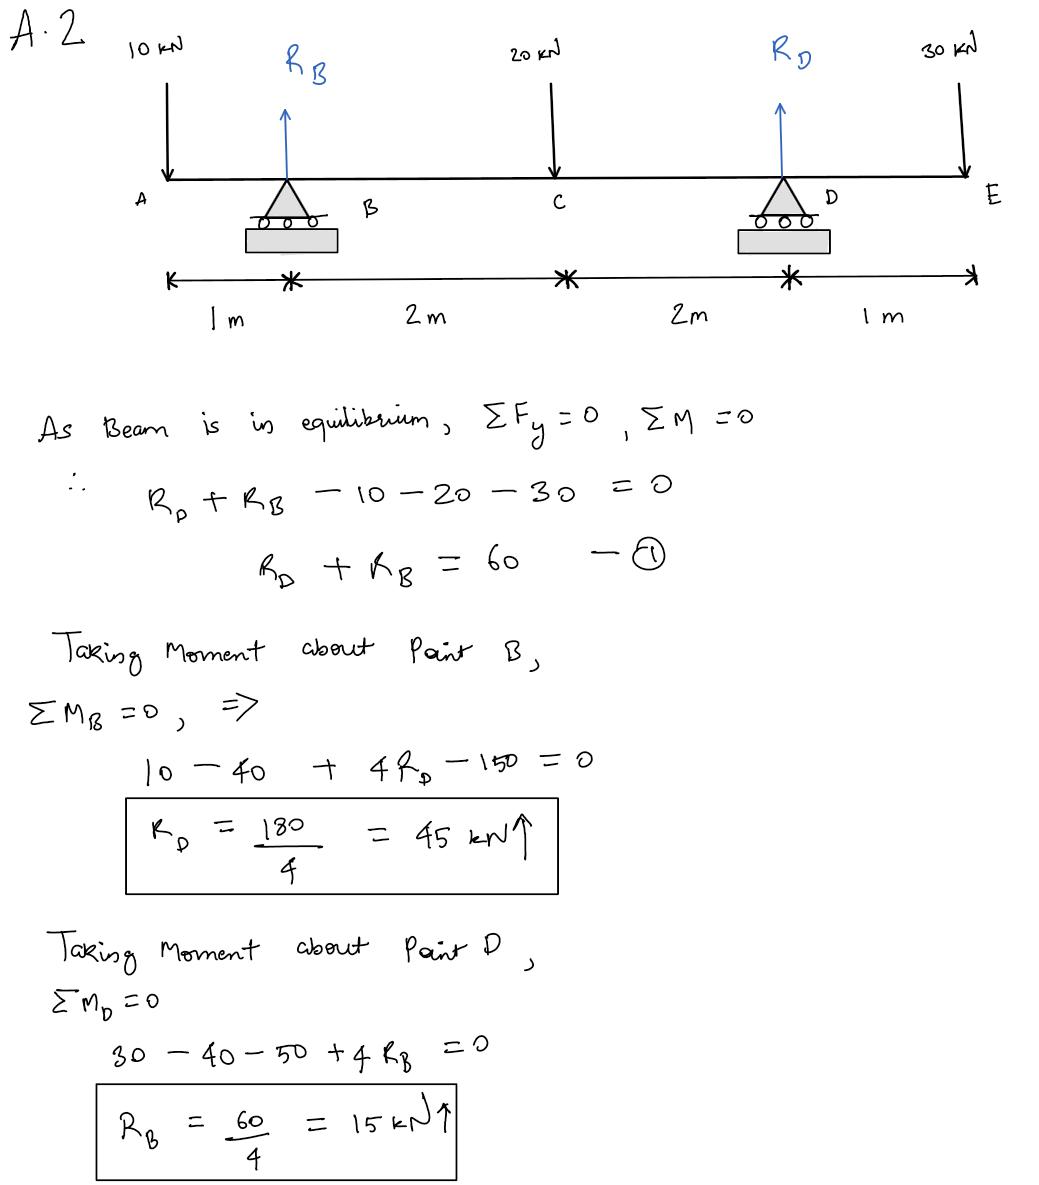 A.2
10 kN R_B 20 kN R_D 30 kN
A B C D E
1 m 2 m 2m 1 m
As Beam is in equilibrium, ΣF_y = 0, ΣM = 0
∴ R_D + R_B - 10 - 20 - 30 = 0
R_D + R_B = 60 - ①
Taking Moment about Point B,
ΣM_B = 0, =>
10 - 40 + 4R_D - 150 = 0
R_D = 180/4 = 45 kN↑
Taking Moment about Point D,
ΣM_D = 0
30 - 40 - 50 + 4 R_B = 0
R_B = 60/4 = 15 kN↑